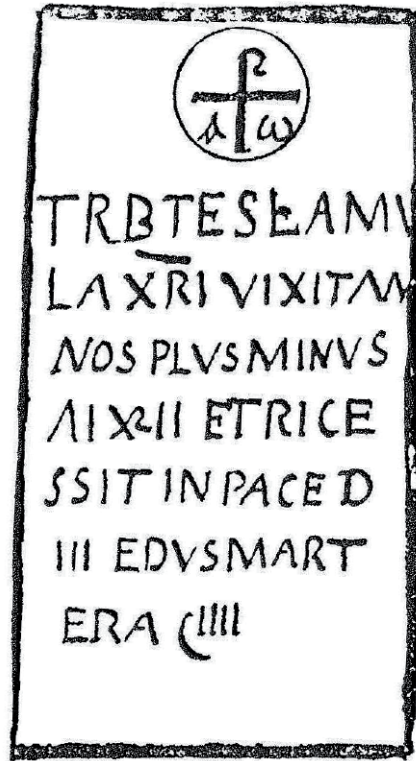 α ω
TRBTESFAMV
LAXRI VIXITAN
NOS PLVSMINVS
ETRICE
SSIT INPACE D
III EDVSMART
ERA ϚIIII